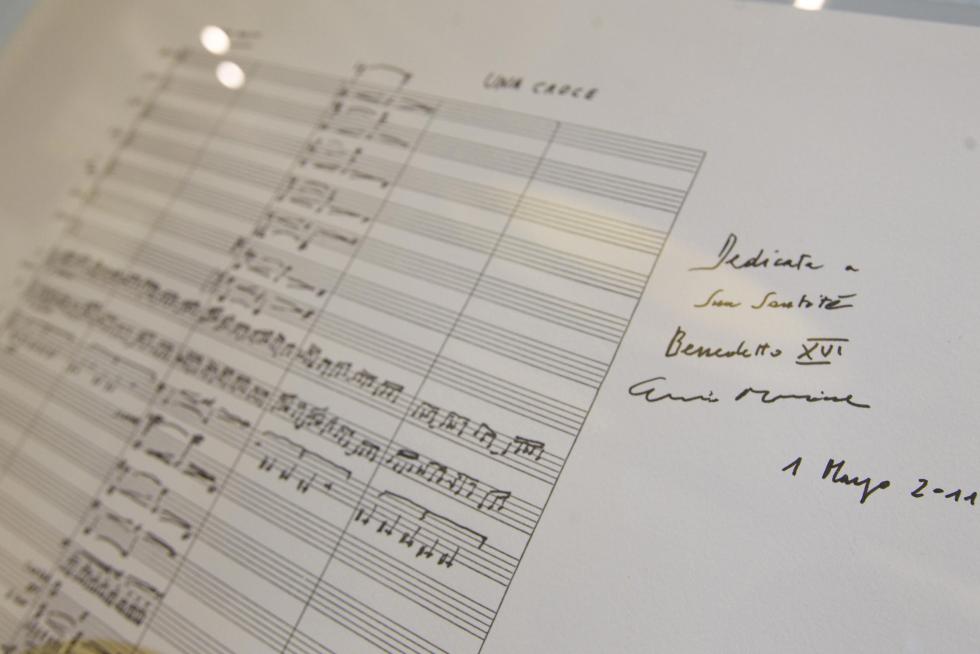 UNA CROCE
Dedicata a
Sua Santità
Benedetto XVI
Ennio Morricone
1 Marzo 2011